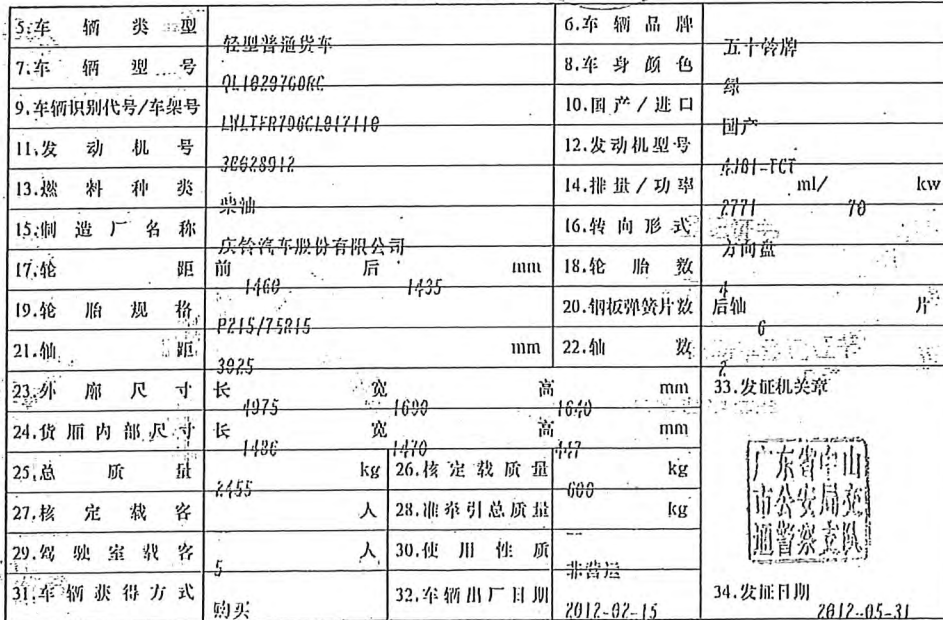 5.车辆类型 轻型普通货车 6.车辆品牌 五十铃牌
7.车辆型号 8.车身颜色 绿
9.车辆识别代号/车架号 10.国产/进口 国产
11.发动机号 30628912 12.发动机型号
13.燃料种类 柴油 14.排量/功率 2771 ml/ 70 kw
15.制造厂名称 庆铃汽车股份有限公司 16.转向形式 方向盘
17.轮距 前 1460 后 1435 mm 18.轮胎数 4
19.轮胎规格 P215/75R15 20.钢板弹簧片数 后轴 6 片
21.轴距 3025 mm 22.轴数 2
23.外廓尺寸 长 4975 宽 1690 高 1640 mm 33.发证机关章
24.货厢内部尺寸 长 1486 宽 1470 高 447 mm
25.总质量 2455 kg 26.核定载质量 600 kg
27.核定载客 人 28.准牵引总质量 -- kg
29.驾驶室载客 5 人 30.使用性质 非营运
31.车辆获得方式 购买 32.车辆出厂日期 2012-02-15 34.发证日期 2012-05-31
广东省中山
市公安局交
通警察支队